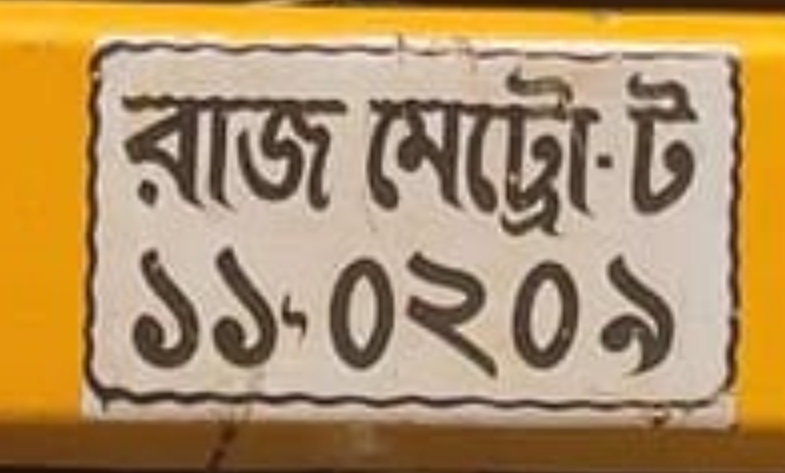 রাজ মেট্রো-ট
১১-০২০৯